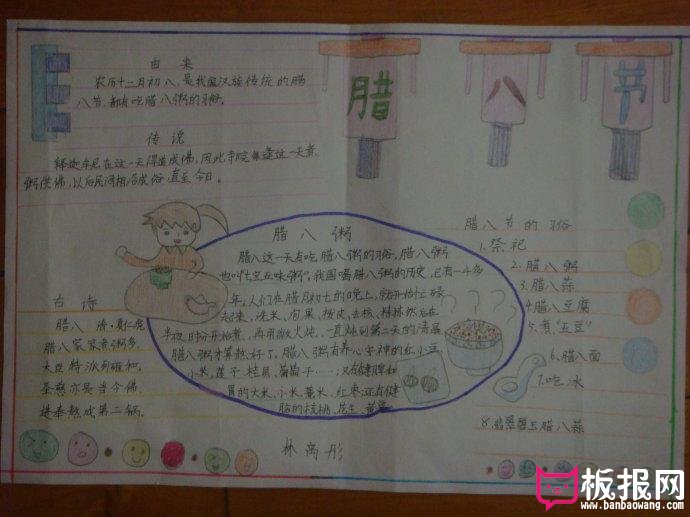 腊八节
由来
农历十二月初八,是我国汉族传统的腊
八节,都有吃腊八粥的习俗。
传说
释迦牟尼在这一天得道成佛,因此寺院每逢这一天煮
粥供佛,以后民间相沿成俗,直至今日。
腊八粥
腊八这一天有吃腊八粥的习俗,腊八粥
也叫“七宝五味粥”。我国喝腊八粥的历史,已有一千多
年。人们在腊月初七的晚上,就开始忙碌
起来,洗米、泡果、拨皮、去核、精拣然后在
半夜时分开始煮,再用微火炖,一直炖到第二天的清晨
腊八粥才算熬好了。腊八粥有养心安神的红小豆
小米、莲子、桂圆、葡萄干……又有健脾和
胃的大米、小米、薏米、红枣还有健
脑的核桃、花生、黄
古诗
腊八 清·
腊八家家煮粥多,
大臣特派到雍和。
圣慈亦是当今佛,
进奉熬成第二锅。
腊八节的习俗
1.祭祀
2.腊八粥
3.腊八蒜
4.腊八豆腐
5.煮“五豆”
6.腊八面
7.吃冰
8.翡翠碧玉腊八蒜
林
彤
板报网
www.banbaowang.com